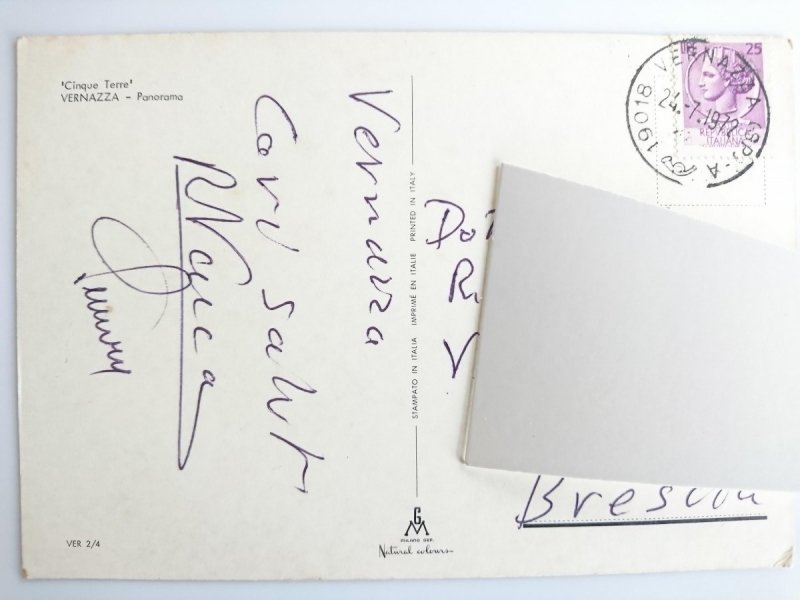 'Cinque Terre'
VERNAZZA – Panorama
Vernazza
Cari saluti
STAMPATO IN ITALIA IMPRIMÉ EN ITALIE PRINTED IN ITALY
25
REPUBBLICA
ITALIANA
19018 VERNAZZA (SP) - A
24.-7.1972
Brescia
VER 2/4
GM
MILANO DEP.
Natural colours